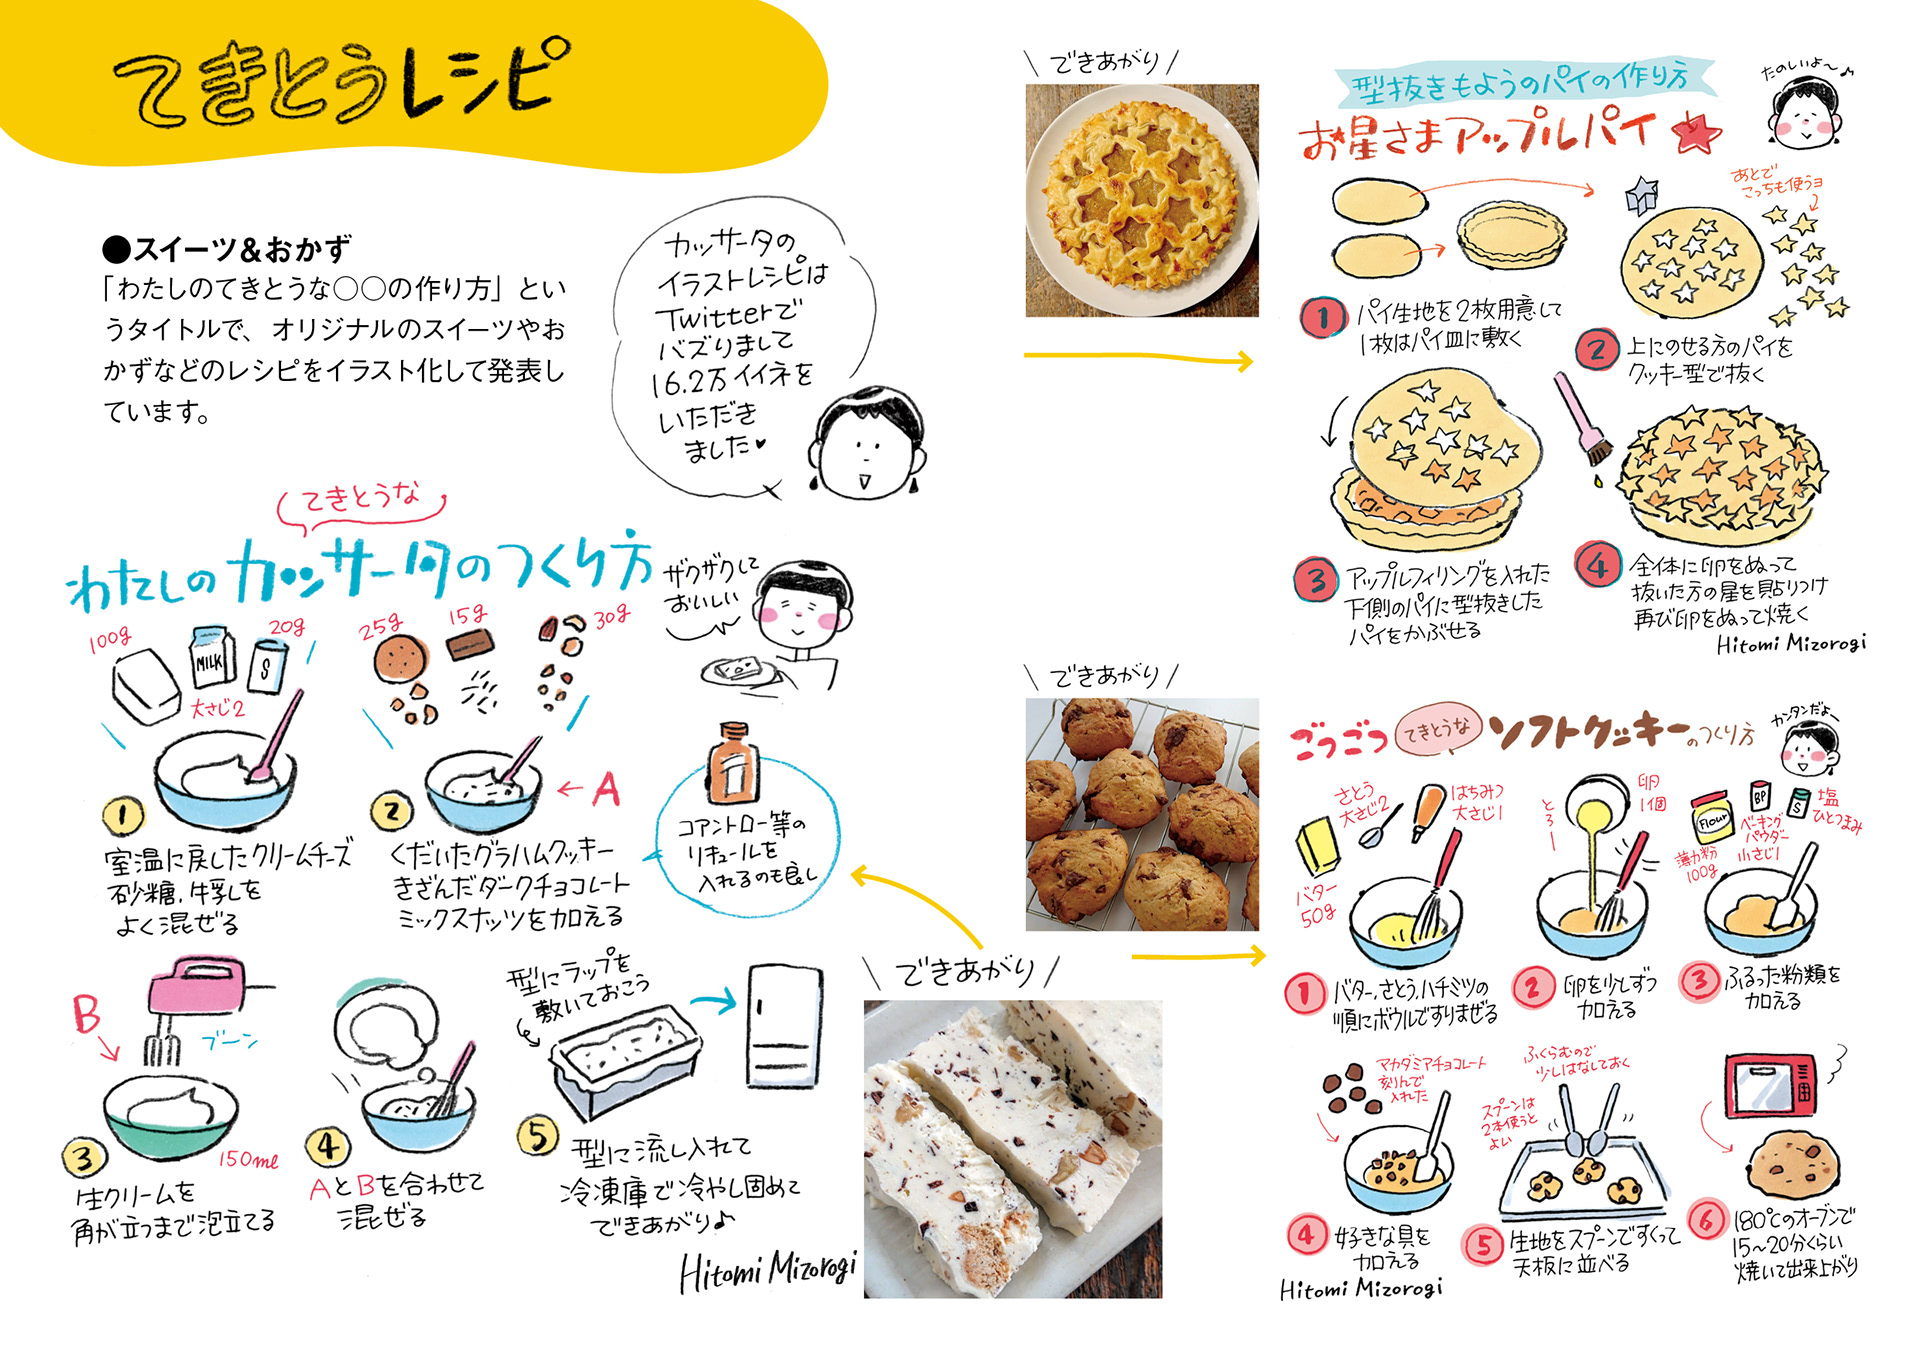 てきとうレシピ
●スイーツ&おかず
「わたしのてきとうな○○の作り方」とい
うタイトルで、オリジナルのスイーツやお
かずなどのレシピをイラスト化して発表し
ています。
カッサータの
イラストレシピは
Twitterで
バズりまして
16.2万イイネを
いただき
ました♥
てきとうな
わたしのカッサータのつくり方
ザクザクして
おいしい
100g
MILK
大さじ2
20g
S
25g
15g
30g
1
室温に戻したクリームチーズ
砂糖,牛乳を
よく混ぜる
←A
2
くだいたグラハムクッキー
きざんだダークチョコレート
ミックスナッツを加える
コアントロー等の
リキュールを
入れるのも良し
B
ブーン
150ml
3
生クリームを
角が立つまで泡立てる
4
AとBを合わせて
混ぜる
型にラップを
敷いておこう
5
型に流し入れて
冷凍庫で冷やし固めて
できあがり♪
Hitomi Mizorogi
\ できあがり /
\ できあがり /
型抜きもようのパイの作り方
お星さまアップルパイ★
たのしいよ〜♪
あとで
こっちも使うヨ
1
パイ生地を2枚用意して
1枚はパイ皿に敷く
2
上にのせる方のパイを
クッキー型で抜く
3
アップルフィリングを入れた
下側のパイに型抜きした
パイをかぶせる
4
全体に卵をぬって
抜いた方の星を貼りつけ
再び卵をぬって焼く
Hitomi Mizorogi
\ できあがり /
ごつごつ てきとうな ソフトクッキーのつくり方
カンタンだよー
さとう
大さじ2
はちみつ
大さじ1
バター
50g
1
バター,さとう,ハチミツの
順にボウルですりまぜる
とろー
卵
1個
2
卵を少しずつ
加える
Flour
薄力粉
100g
BP
ベーキング
パウダー
小さじ1
S
塩
ひとつまみ
3
ふるった粉類を
加える
マカダミアチョコレート
刻んで
入れた
4
好きな具を
加える
ふくらむので
少しはなしておく
スプーンは
2本使うと
よい
5
生地をスプーンですくって
天板に並べる
6
180℃のオーブンで
15〜20分くらい
焼いて出来上がり
Hitomi Mizorogi